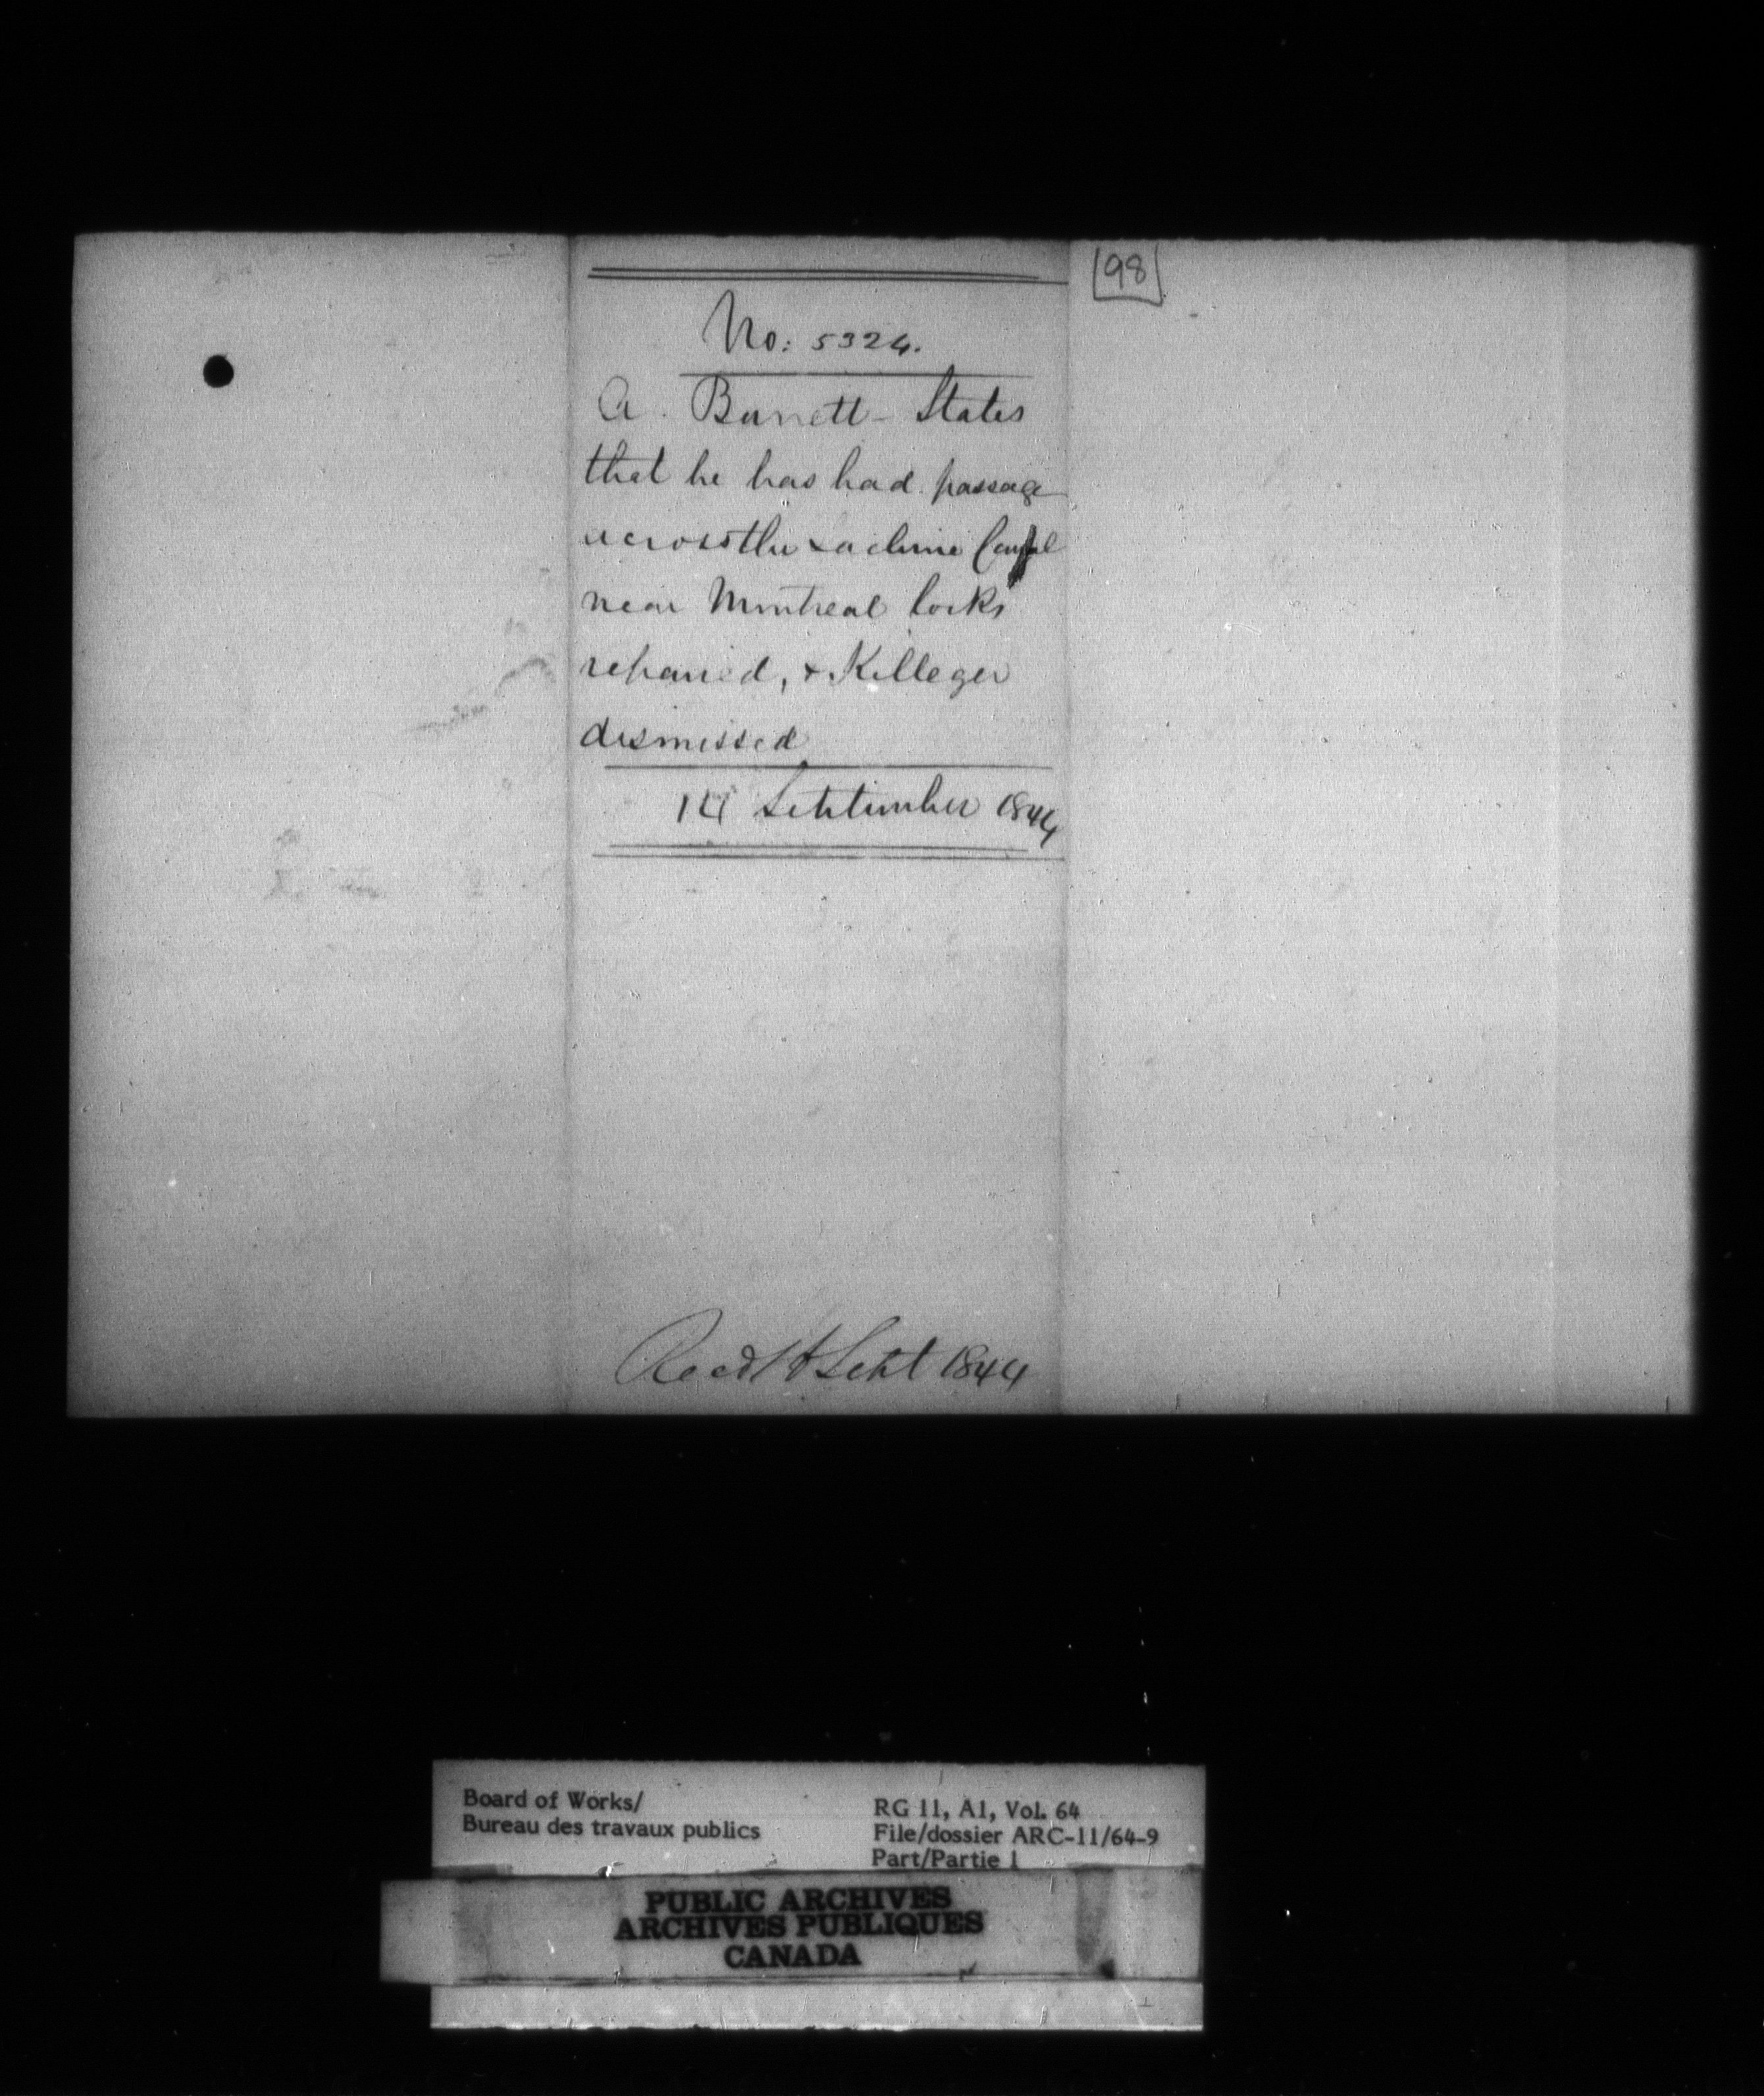 [98]
No: 5324.
A. Barrett - States
that he has had passage
across the Lachine Canal
near Montreal locks
repaired, & Killeger
dismissed
14 September 1844
Recd 14 Sept 1844
Board of Works/
Bureau des travaux publics
RG 11, A1, Vol. 64
File/dossier ARC-11/64-9
Part/Partie 1
PUBLIC ARCHIVES
ARCHIVES PUBLIQUES
CANADA